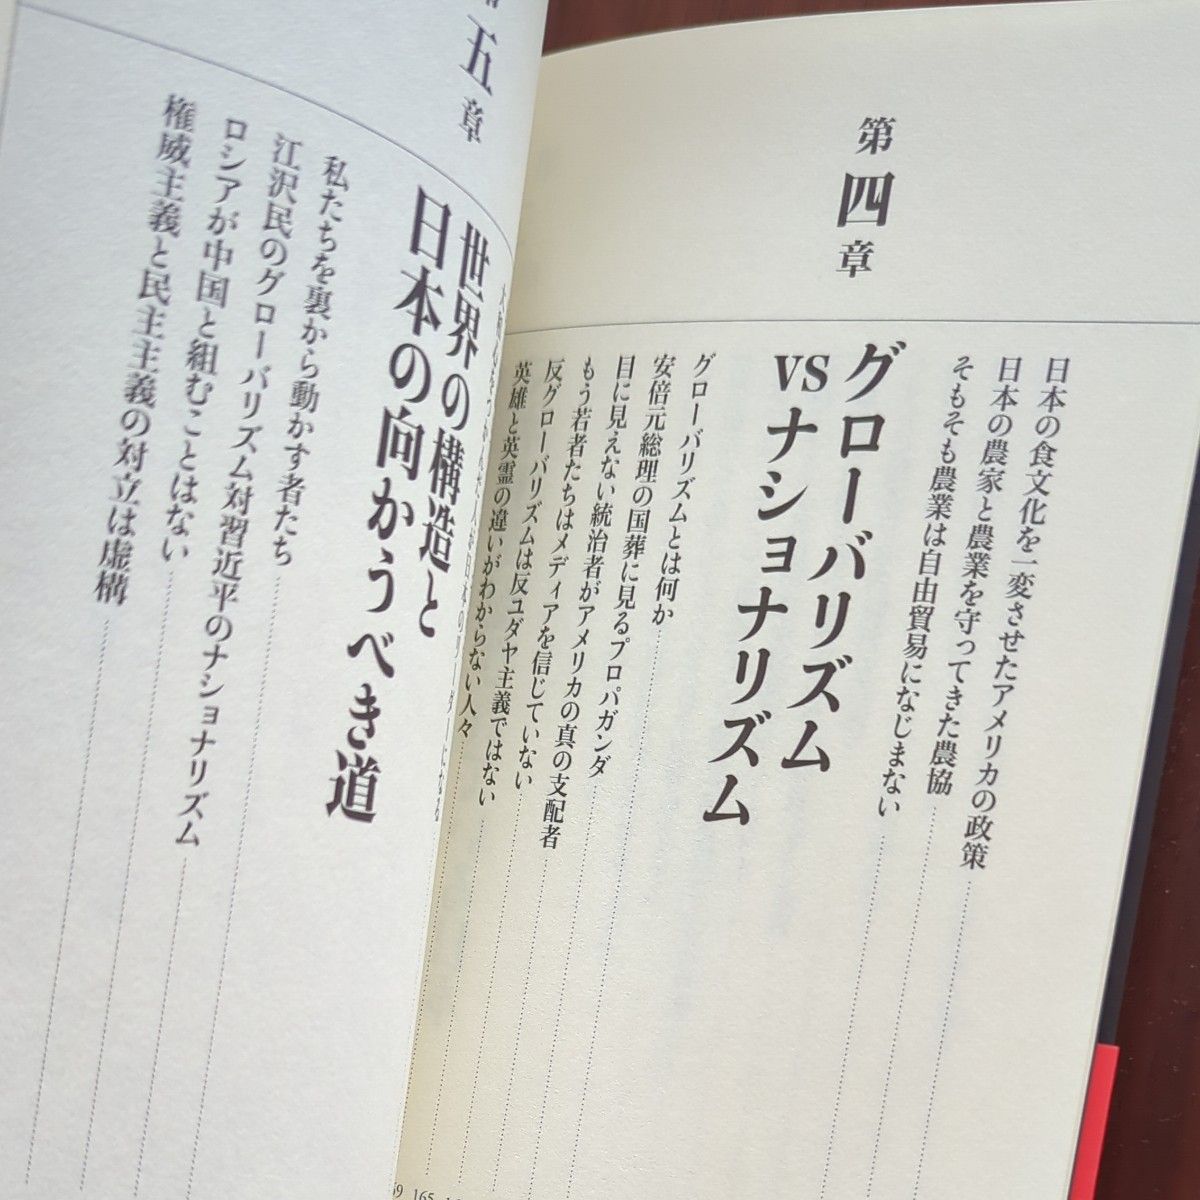 日本の食文化を一変させたアメリカの政策
日本の農家と農業を守ってきた農協
そもそも農業は自由貿易になじまない
第四章
グローバリズム
vsナショナリズム
グローバリズムとは何か
安倍元総理の国葬に見るプロパガンダ
目に見えない統治者がアメリカの真の支配者
もう若者たちはメディアを信じていない
反グローバリズムは反ユダヤ主義ではない
英雄と英霊の違いがわからない人々
165
五章
世界の構造と
日本の向かうべき道
私たちを裏から動かす者たち
江沢民のグローバリズム対習近平のナショナリズム
ロシアが中国と組むことはない
権威主義と民主主義の対立は虚構